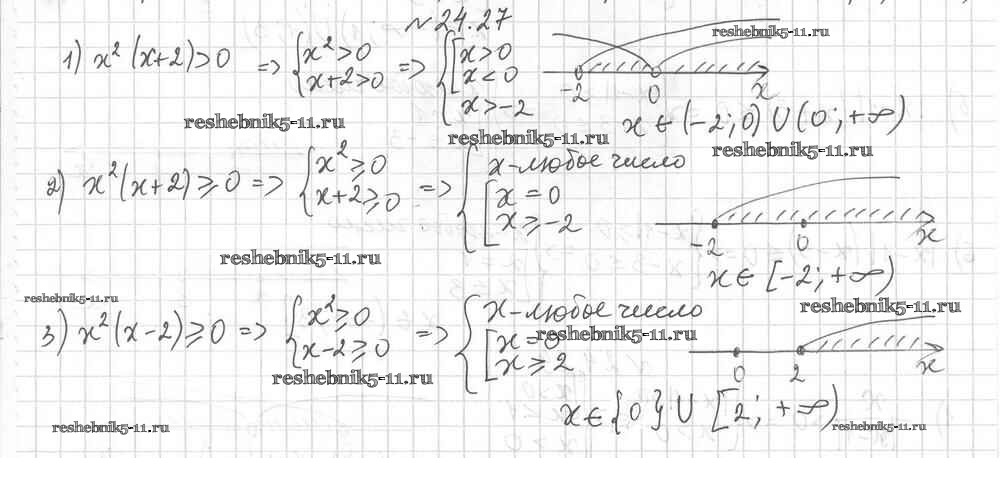 № 24.27
reshebnik5-11.ru
1) x² (x+2)>0 => { x²>0 x+2>0 => { [ x>0 x<0 x>-2
-2 0 x
reshebnik5-11.ru
reshebnik5-11.ru
x ∈ (-2; 0) ∪ (0; +∞)
reshebnik5-11.ru
2) x² (x+2) ⩾ 0 => { x² ⩾ 0 x+2 ⩾ 0 => { x-любое число [ x = 0 x ⩾ -2
-2 0 x
reshebnik5-11.ru
x ∈ [-2; +∞)
reshebnik5-11.ru
reshebnik5-11.ru
3) x² (x-2) ⩾ 0 => { x² ⩾ 0 x-2 ⩾ 0 => { x-любое число [ x = 0 x ⩾ 2
reshebnik5-11.ru
0 2 x
reshebnik5-11.ru
x ∈ {0} ∪ [2; +∞)
reshebnik5-11.ru
reshebnik5-11.ru